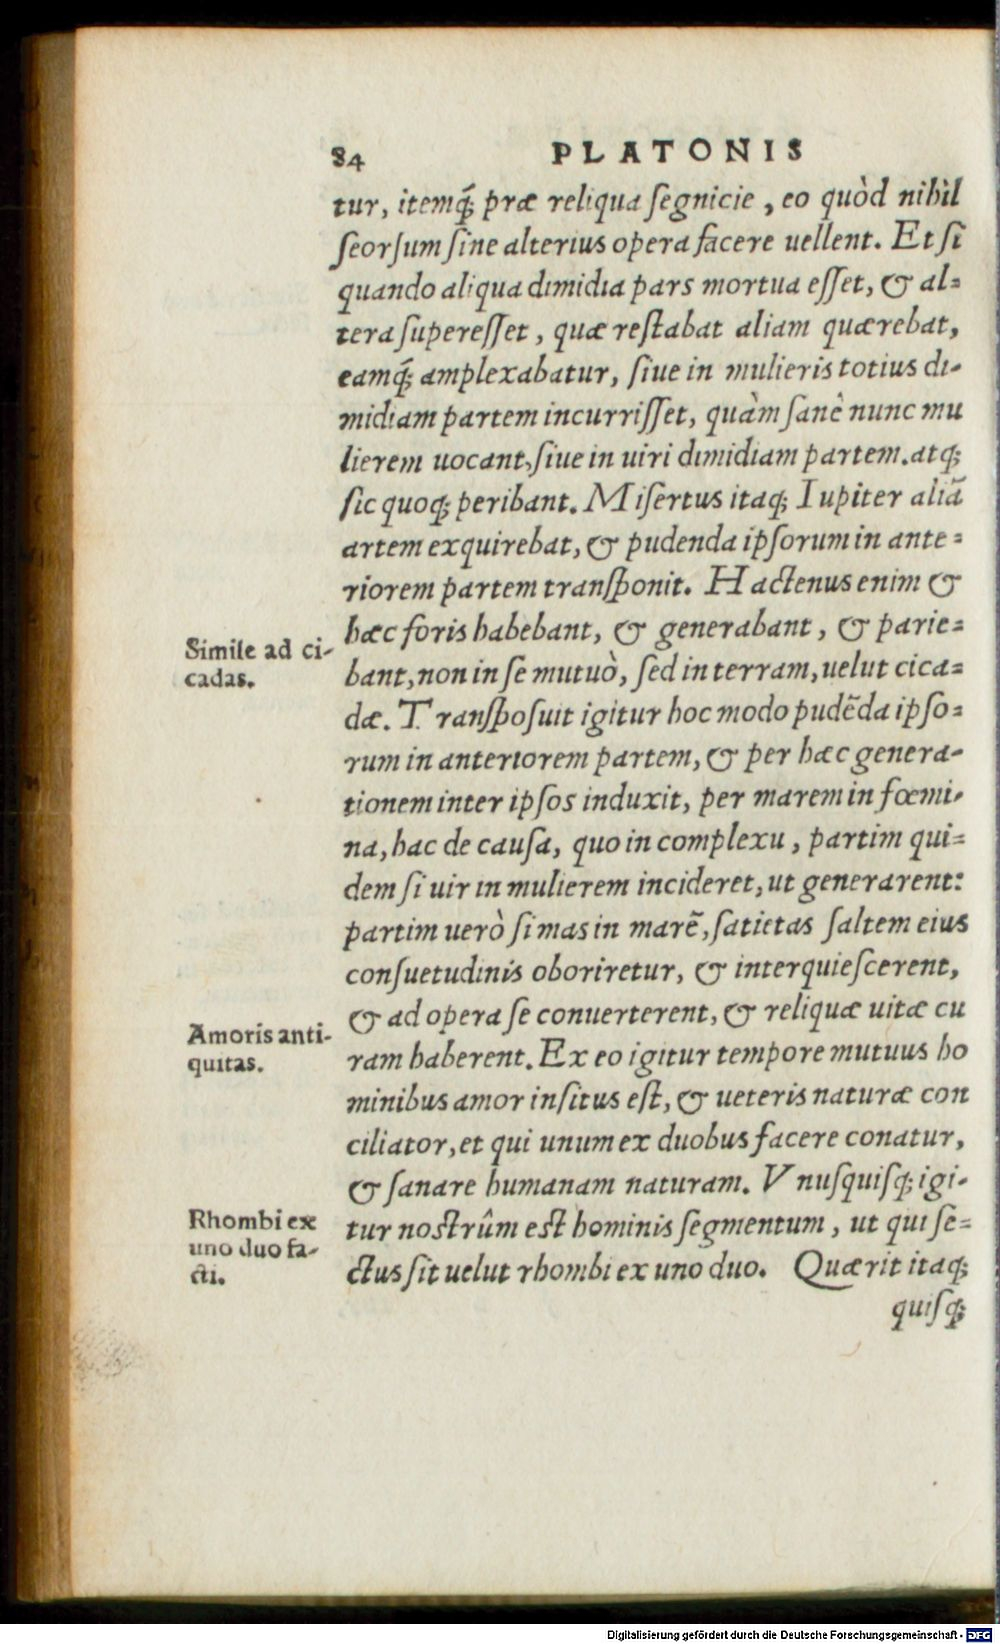 84 PLATONIS
tur, itemq́; præ reliqua ſegnicie, eo quòd nihil
ſeorſum ſine alterius opera facere uellent. Et ſi
quando aliqua dimidia pars mortua eſſet, & al=
tera ſupereſſet, quæ reſtabat aliam quærebat,
eamq́; amplexabatur, ſiue in mulieris totius di-
midiam partem incurriſſet, quàm ſanè nunc mu
lierem uocant, ſiue in uiri dimidiam partem. atq;
ſic quoq; peribant. Miſertus itaq; Iupiter aliã
artem exquirebat, & pudenda ipſorum in ante=
riorem partem tranſponit. Hactenus enim &
hæc foris habebant, & generabant, & parie=
Simile ad ci-
cadas.
bant, non in ſe mutuò, ſed in terram, uelut cica=
dæ. Tranſpoſuit igitur hoc modo pudẽda ipſo=
rum in anteriorem partem, & per hæc genera-
tionem inter ipſos induxit, per marem in fœmi-
na, hac de cauſa, quo in complexu, partim qui=
dem ſi uir in mulierem incideret, ut generarent:
partim uerò ſi mas in marẽ, ſatietas ſaltem eius
conſuetudinis oboriretur, & interquieſcerent,
& ad opera ſe conuerterent, & reliquæ uitæ cu
Amoris anti-
quitas.
ram haberent. Ex eo igitur tempore mutuus ho
minibus amor inſitus eſt, & ueteris naturæ con
ciliator, et qui unum ex duobus facere conatur,
& ſanare humanam naturam. Vnuſquiſq; igi-
Rhombi ex
uno duo fa-
cti.
tur noſtrûm eſt hominis ſegmentum, ut qui ſe=
ctus ſit uelut rhombi ex uno duo. Quærit itaq;
quiſq;
Digitalisierung gefördert durch die Deutsche Forschungsgemeinschaft - DFG